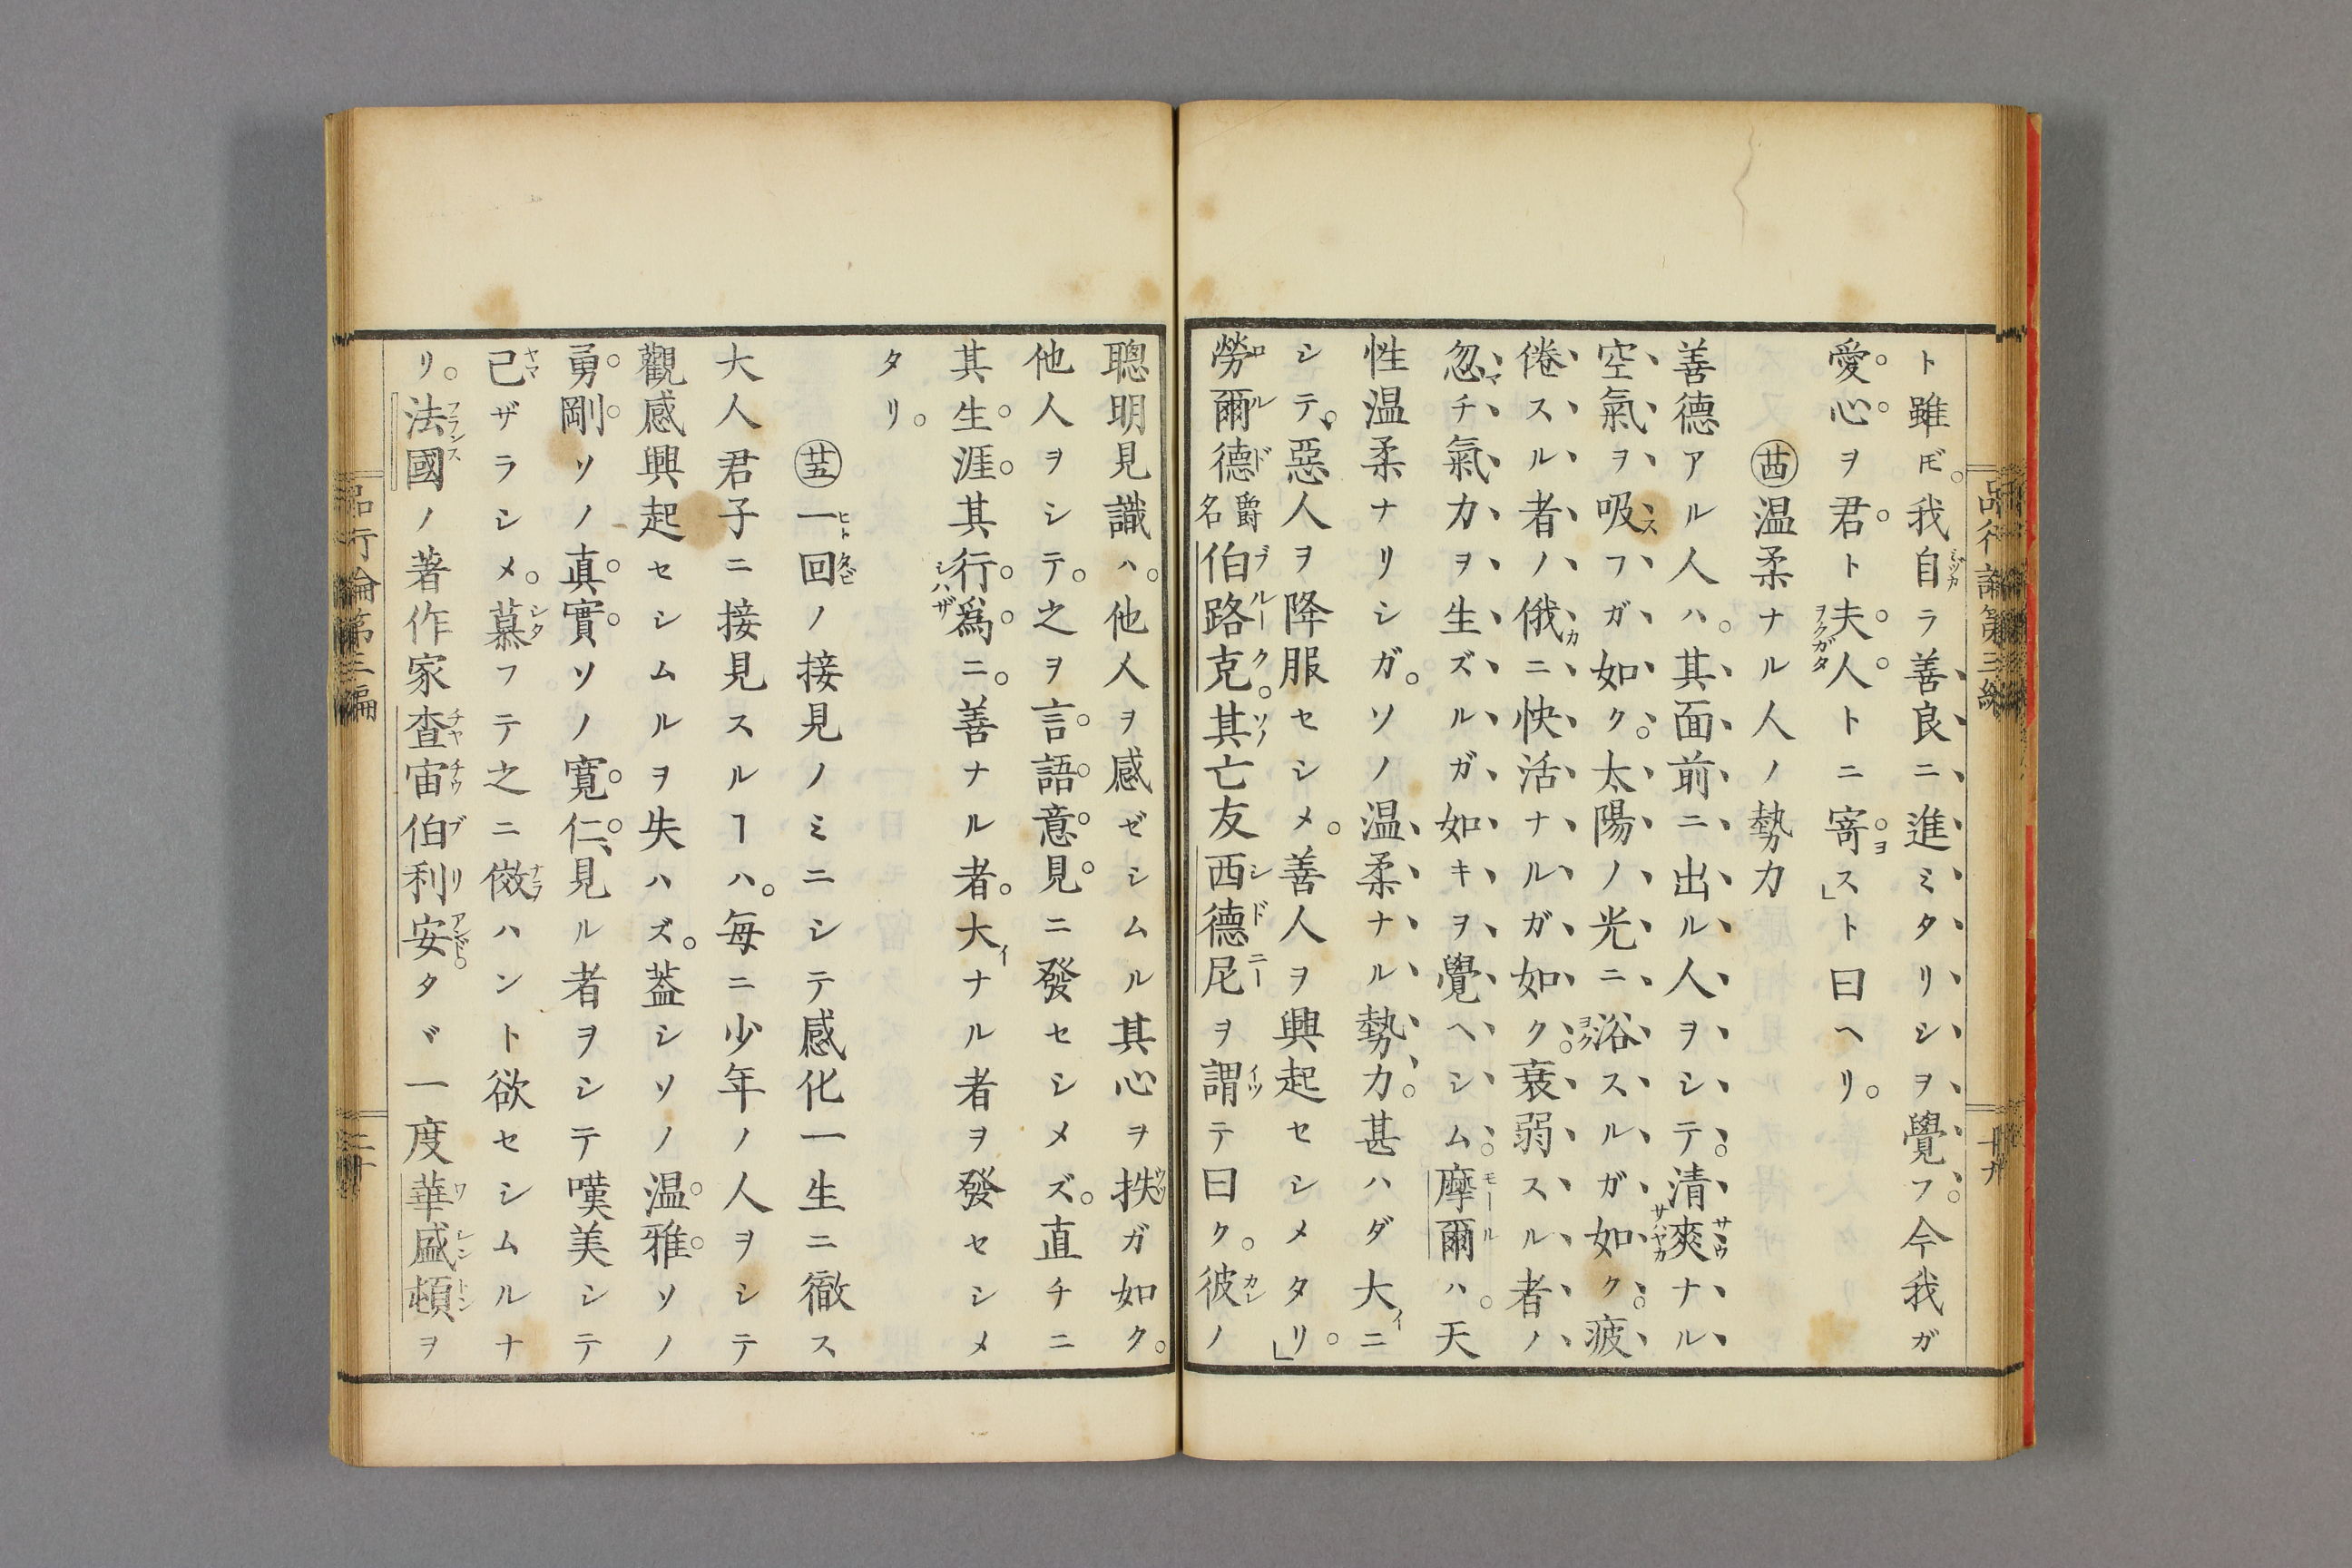 ト雖𪜈。我自ラ善良ニ進ミタリシヲ覺フ。今我ガ
愛心ヲ君ト夫人トニ寄ス」ト曰ヘリ。
㊁温柔ナル人ノ勢力
善德アル人ハ。其面前ニ出ル人ヲシテ。清爽ナル
空氣ヲ吸フガ如ク。太陽ノ光ニ浴スルガ如ク。疲
倦スル者ノ俄ニ快活ナルガ如ク。衰弱スル者ノ
忽チ氣力ヲ生ズルガ如キヲ覺ヘシム。摩爾ハ。天
性温柔ナリシガ。ソノ温柔ナル勢力。甚ハダ大ニ
シテ。惡人ヲ降服セシメ。善人ヲ興起セシメタリ。」
勞爾德爵名伯路克。其亡友西德尼ヲ謂テ曰ク。彼ノ
聰明見識ハ。他人ヲ感ゼシムル其心ヲ抶ガ如ク。
他人ヲシテ。之ヲ言語意見ニ發セシメズ。直チニ
其生涯其行爲ニ。善ナル者。大ナル者ヲ發セシメ
タリ。
一回ノ接見ノミニシテ感化一生ニ徹ス
大人君子ニ接見スルヿハ。毎ニ少年ノ人ヲシテ
觀感興起セシムルヲ失ハズ。葢シソノ温雅ソノ
勇剛ソノ真實ソノ寛仁、見ル者ヲシテ嘆美シテ
已ザラシメ。慕フテ之ニ傚ハント欲セシムルナ
リ。法國ノ著作家査宙伯利安。タヾ一度華盛頓ヲ
品行論第三編
二十